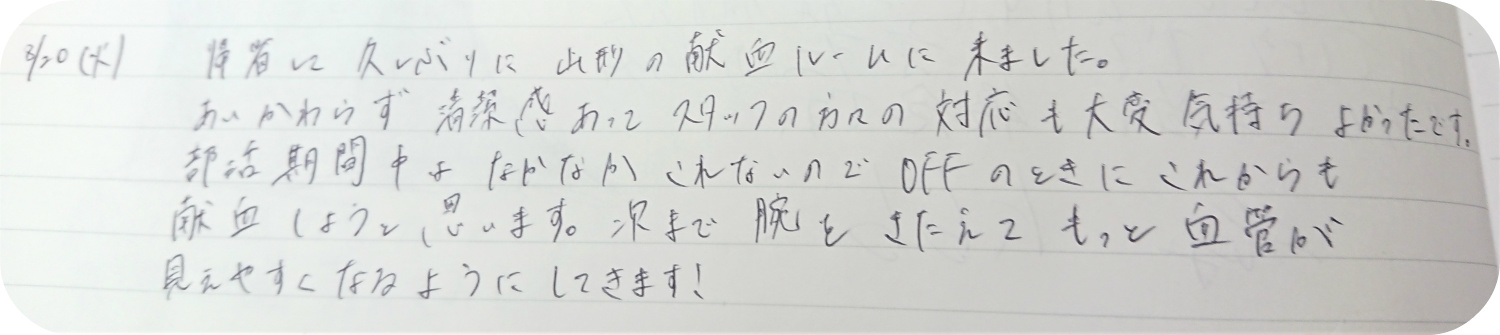 3/20(水) 帰省して久しぶりに山形の献血ルームに来ました。
あいかわらず清潔感あってスタッフの方々の対応も大変気持ちよかったです。
部活期間中はなかなかこれないのでOFFのときにこれからも
献血しようと思います。次まで腕をきたえてもっと血管が
見えやすくなるようにしてきます!